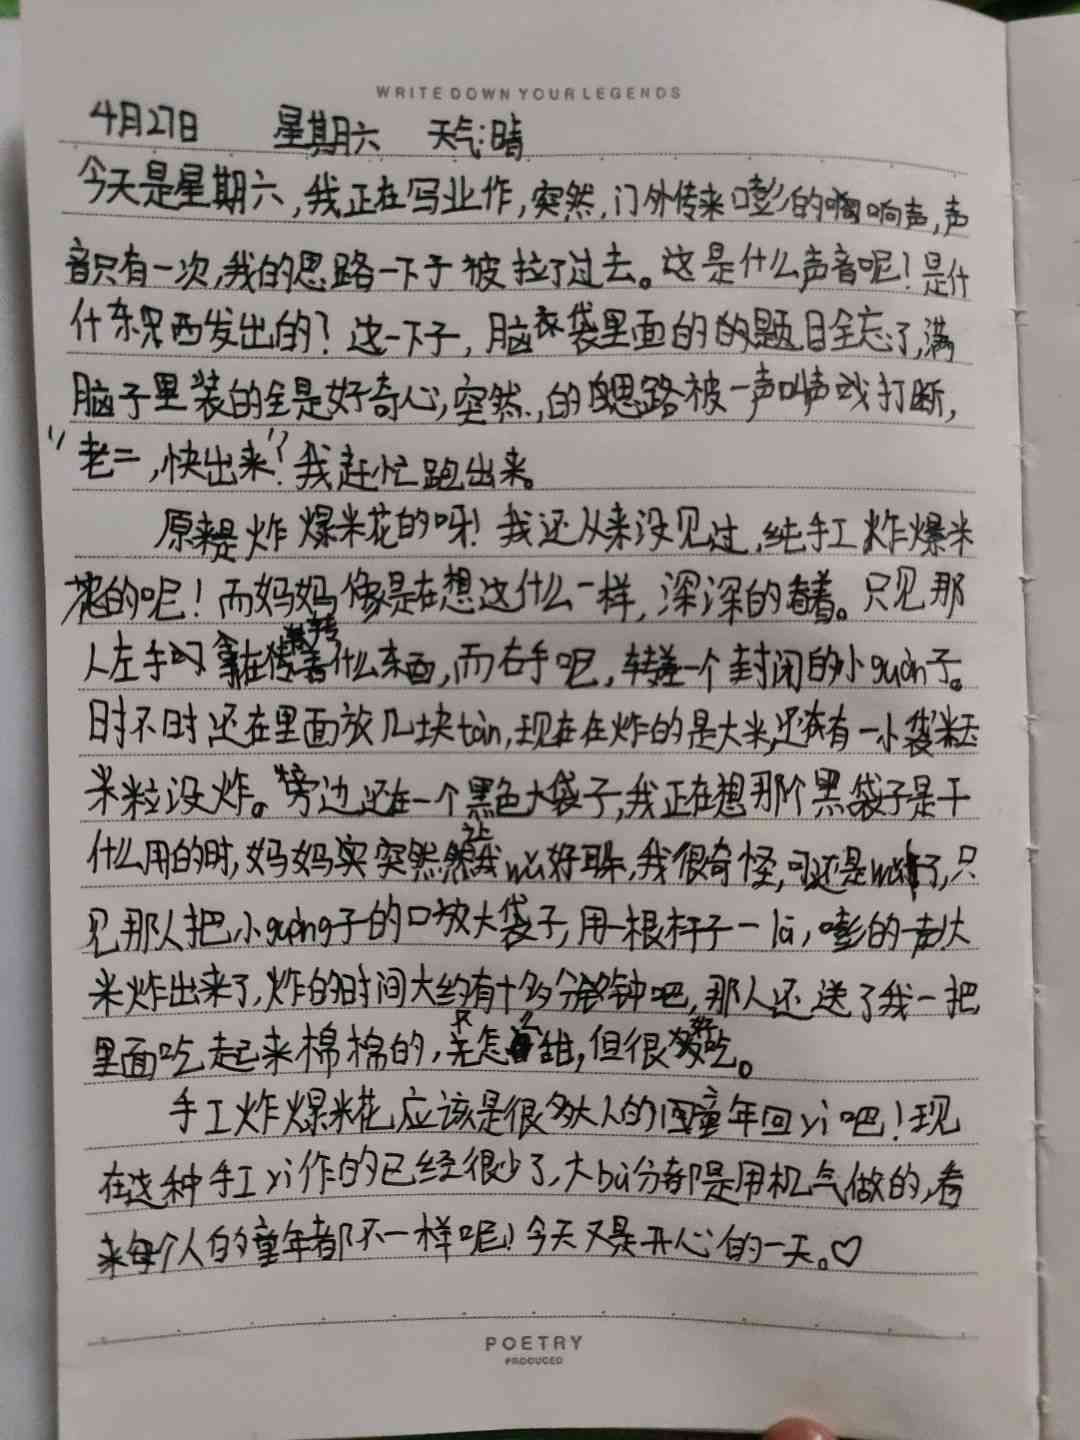 WRITE DOWN YOUR LEGENDS
4月27日 星期六 天气:晴
今天是星期六,我正在写业作,突然,门外传来嘭的响声,声
音只有一次,我的思路一下于被拉了过去。这是什么声音呢!是什
什东西发出的?这一下子,脑袋里面的的题目全忘了,满
脑子里装的全是好奇心,突然,的思路被一声叫声或打断,
"老二,快出来"?我赶忙跑出来。
原来是炸爆米花的呀!我还从来没见过,纯手工炸爆米
花的呢!而妈妈像是在想这什么一样,深深的看着。只见那
人左手拿在转着什么东西,而右手呢,转着一个封闭的小guàn子。
时不时还在里面放几块tàn,现在在炸的是大米,还有一小袋玉
米粒没炸。旁边还在一个黑色大袋子,我正在想那个黑袋子是干
什么用的时,妈妈突然让我wǔ好耳朵,我很奇怪,可还是wǔ了,只
见那人把小guàng子的口放大袋子,用一根杆子一lā,嘭的一声大
米炸出来了,炸的时间大约有十多分钟吧,那人还送了我一把
里面吃起来棉棉的,不怎么甜,但很好吃。
手工炸爆米花应该是很多大人的童年回yì吧!现
在这种手工yì作的已经很少了,大bù分都是用机气做的,看
来每个人的童年都不一样呢!今天又是开心的一天。♡
POETRY
PRODUCED